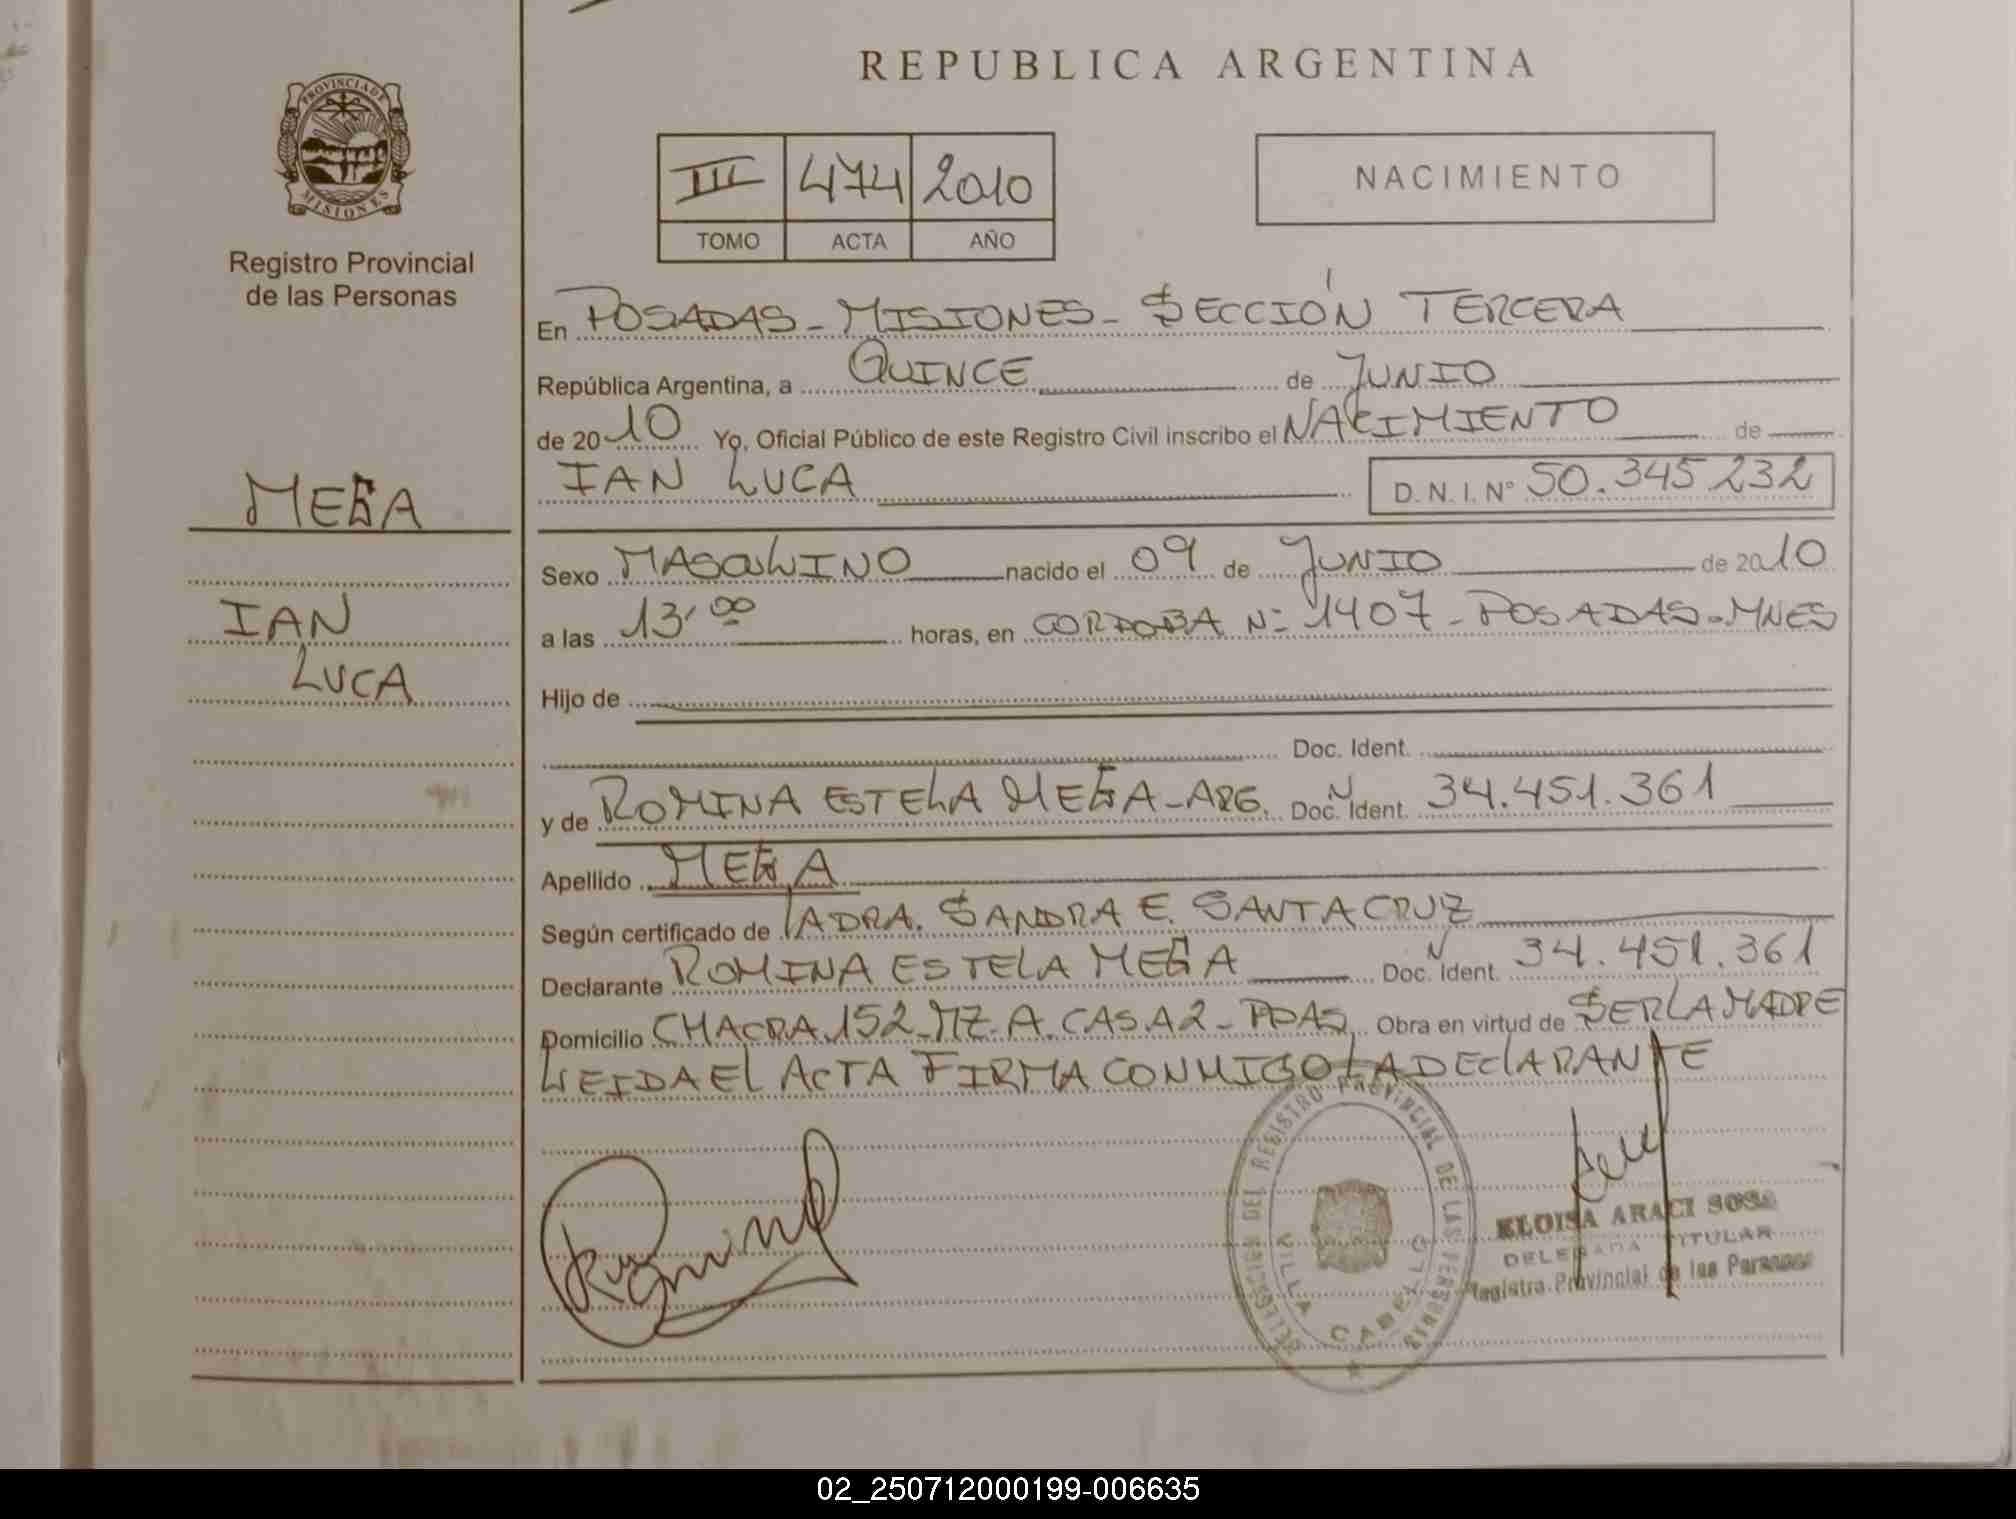 REPUBLICA ARGENTINA
PROVINCIA DE
MISIONES
Registro Provincial
de las Personas
III 474 2010
TOMO ACTA AÑO
NACIMIENTO
En POSADAS - MISIONES - SECCIÓN TERCERA
República Argentina, a QUINCE de JUNIO
de 2010 Yo, Oficial Público de este Registro Civil inscribo el NACIMIENTO de
IAN LUCA D. N. I. Nº 50.345.232
IAN
LUCA
Sexo MASCULINO nacido el 09 de JUNIO de 2010
a las 13,00 horas, en CORDOBA Nº 1407 - POSADAS - MNES
Hijo de
Doc. Ident.
y de ROMINA ESTELA - ARG. Doc. N Ident. 34.451.361
Apellido
Según certificado de LA DRA. SANDRA E. SANTA CRUZ
Declarante ROMINA ESTELA Doc. N Ident. 34.451.361
Domicilio CHACRA 152 - MZ. A. CASA 2 - PDAS Obra en virtud de SER LA MADRE
LEIDA EL ACTA FIRMA CONMIGO LA DECLARANTE
DELEGACION DEL REGISTRO PROVINCIAL DE LAS PERSONAS
VILLA CABELLO
ELOISA ARACI SOSA
DELEGADA TITULAR
Registro Provincial de las Personas
02_250712000199-006635